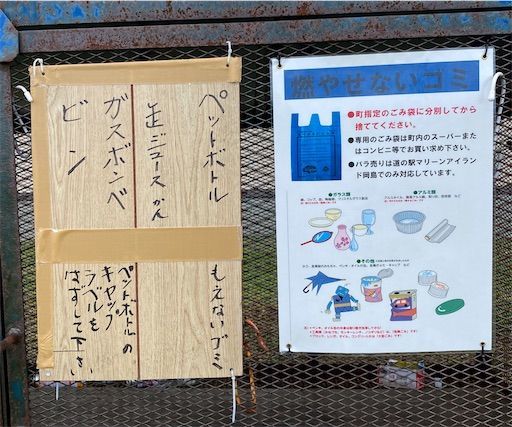 ペットボトル
缶ジュースかん
ガスボンベ
ビン
もえないゴミ
ペットボトルの
キャップ
ラベルを
はずして下さい
燃やせないゴミ
●町指定のごみ袋に分別してから
捨ててください。
●専用のごみ袋は町内のスーパーまた
はコンビニ等でお買い求め下さい。
●バラ売りは道の駅マリーンアイラン
ド岡島でのみ対応しています。
❶ガラス類
❷アルミ類
❸その他